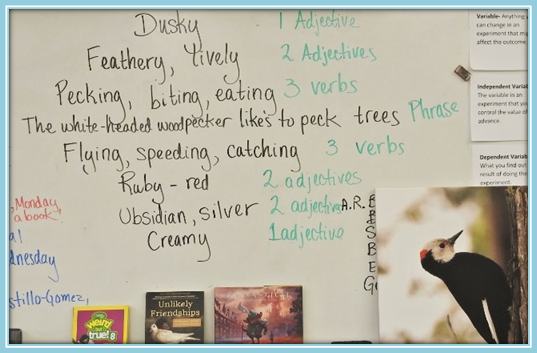 Dusky 1 Adjective
Feathery, lively 2 Adjectives
Pecking, biting, eating 3 verbs
The white-headed woodpecker like's to peck trees Phrase
Flying, speeding, catching 3 verbs
Ruby-red 2 adjectives
Obsidian, silver 2 adjective
Creamy 1 adjective
, Monday
a book
al
dnesday
stillo-Gomez,
A.R. B
B
S
B
E
G
Variable- Anything
can change in an
experiment that mi
affect the outcome
Independent Variab
The variable in an
experiment that you
control the value of
advance.
Dependent Variab
What you find out
result of doing the
experiment.
weird
but
true! 8
Unlikely
Friendships